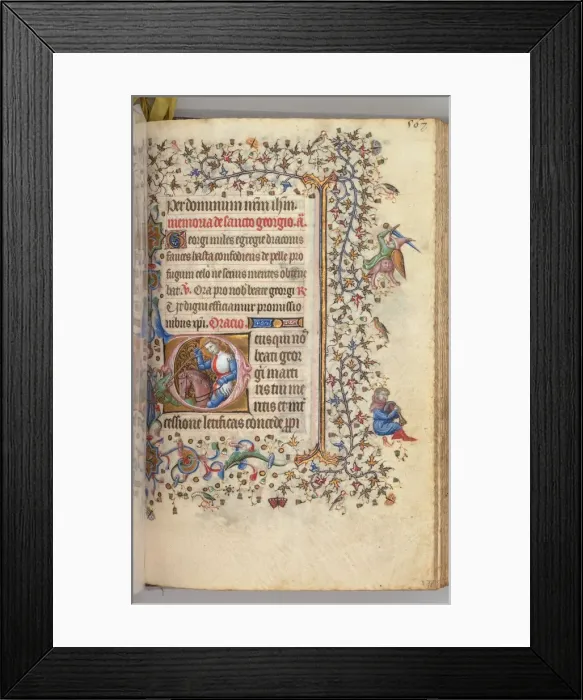 507
per dominum nrm ihm.
memoria de sancto georgio. a.
Georgi miles egregie draconis
fauces hasta confodiens de pelle pro
fugium celo ne seuus mentes
bat. V. Ora pro nob beate georgi R
Vt digni efficiamur promissio
nibus xpi. Oracio.
Deus qui nos
beati geor
gii marti
ris tui me
ritis et int
cessione letificas concede xpi